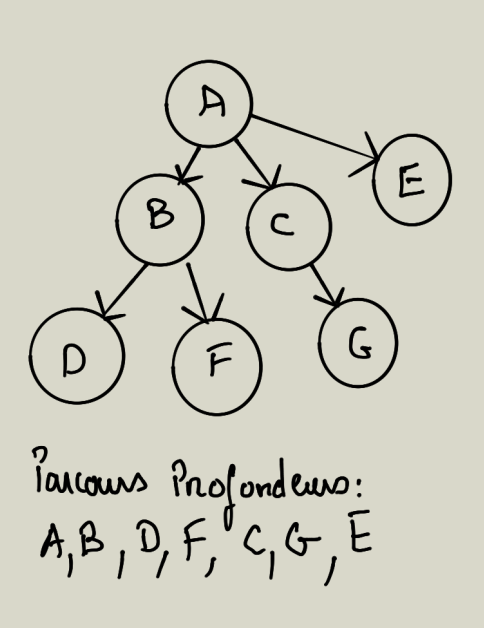 A
E
B
C
D
F
G
Parcours Profondeurs:
A,B, D, F, C, G, E